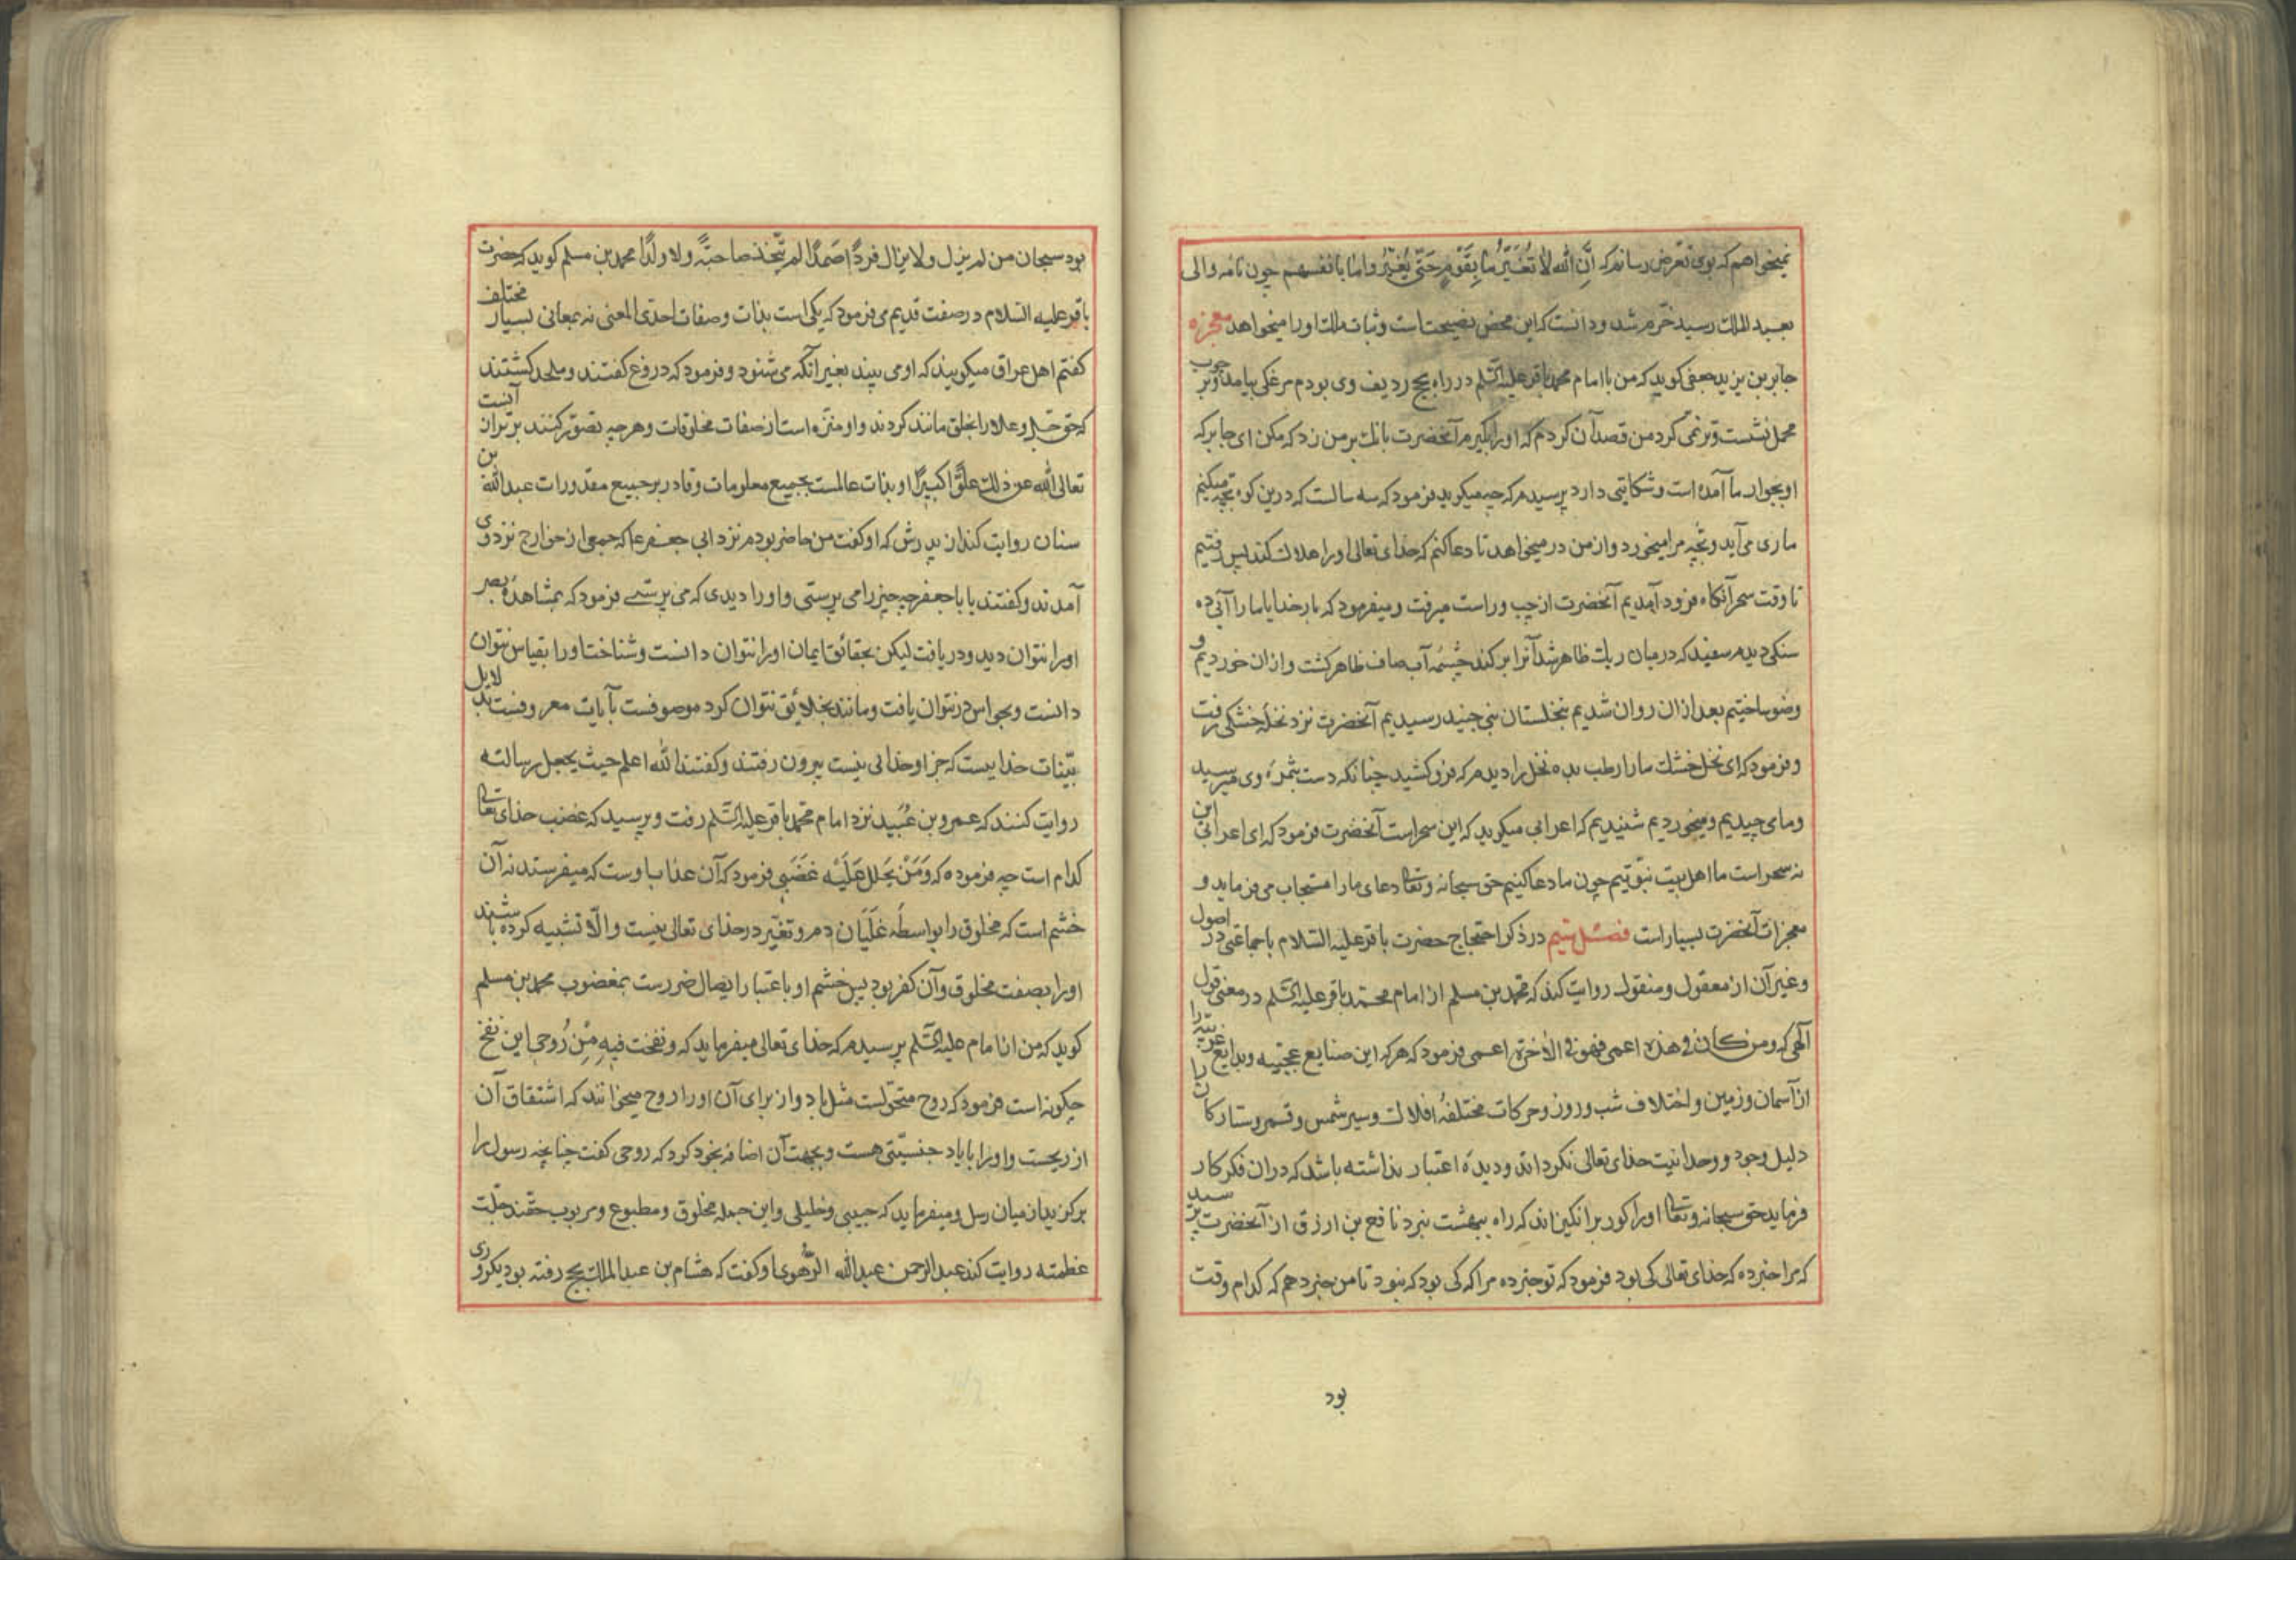 نمیخواهم که بوی تعرض رساند که اِنَّ الله لا تُغَیِّرُ ما بِقَوْمٍ حَتّی یُغَیِّرُوا ما بانفسهم چون نامه والی
بعبد الملك رسید خرّم شد ودانست که این محض نصیحت است وثبات ملك اورا میخواهد معجزه
جابر بن یزید جعفی کوید که من با امام محمد باقر علیه السّلم در راه حج ردیف وی بودم مرغکی بیامد وبر چوب
محمل نشست وترنمی کرد من قصد آن کردم که اورا بکیرم آنحضرت بانك بر من زد که مکن ای جابر که
او بجوار ما آمده است وشکایتی دارد پرسیدم که چه میکوید فرمود که سه سالست که درین کوه بچه میکنم
ماری می آید وبچه مرا میخورد واز من در میخواهد تا دعا کنم که خدای تعالی اورا هلاك کند پس رفتیم
تا وقت سحر آنکاه فرود آمدیم آنحضرت از چپ وراست میرفت ومیفرمود که بار خدایا ما را آبی ده
سنکی دیدم سفید که در میان ریك ظاهر شد آنرا بر کند چشمه آب صاف ظاهر کشت وازان خوردیم و
وضو ساختیم بعد ازان روان شدیم بنخلستان رسیدیم آنحضرت نزد نخله خشکی رفت
وفرمود که ای نخل خشك ما را رطب بده نخل را دیدم که فرو کشید چنانکه دست بثمره وی میرسید
وما می چیدیم ومیخوردیم شنیدیم که اعرابی میکوید که این سحر است آنحضرت فرمود که ای اعرابی این
نه سحر است ما اهل بیت نبوّتیم چون ما دعا کنیم حق سبحانه وتعالی دعای ما را مستجاب می فرماید و
معجزات آنحضرت بسیار است فصل در ذکر احتجاج حضرت باقر علیه السلام با جماعتی در اصول
وغیر آن از معقول ومنقول روایت کند که محمد بن مسلم از امام محمد باقر علیه السّلم در معنی قول
آلهی که ومن کان فی هذه اعمی فهو فی الاخرة اعمی فرمود که هر که این صنایع عجیبه وبدایع غریبه را
از آسمان وزمین واختلاف شب وروز وحرکات مختلفهٔ افلاك وسیر شمس وقمر وستارکان را
دلیل وجود ووحدانیت خدای تعالی نکرداند ودیدهٔ اعتبار نداشته باشد که دران فکر کار
فرماید حق سبحانه وتعالی اورا کور برانکیزاند که راه ببهشت نبرد نافع بن ارزق از آنحضرت پرسید
که مرا خبر ده که خدای تعالی کی بود فرمود که تو خبر ده مرا که کی بود که نبود تا من خبر دهم که کدام وقت
بود
بود سبحان من لم یزل ولا یزال فردًا صَمدًا لم یتّخذ صاحبةً ولا ولدًا محمد بن مسلم کوید که حضرت
باقر علیه السلام در صفت قدیم می فرمود که یکی است بذات وصفات احدی المعنی نه بمعانی بسیار مختلف
کفتم اهل عراق میکویند که او می بیند بغیر آنکه می شنود وفرمود که دروغ کفتند وملحد کشتند
که حق جلّ وعلا را بخلق مانند کردند واو منزّه است از صفات مخلوقات وهر چه تصوّر کنند برتر ازان آنست
تعالی الله عن ذلك علوًّا کبیرًا او بذات عالمست بجمیع معلومات وقادر بر جمیع مقدورات عبد الله بن
سنان روایت کند از پدرش که او کفت من حاضر بودم نزد ابی جعفر ع که جمعی از خوارج نزد وی
آمدند وکفتند یا باجعفر چه چیز را می پرستی واورا دیدی که می پرستی فرمود که بمشاهده بصر
اورا نتوان دید ودریافت لیکن بحقائق ایمان اورا نتوان دانست وشناخت اورا بقیاس نتوان
دانست وبحواس در نتوان یافت ومانند بخلائق نتوان کرد موصوفست بآیات معروفست بدلایل
بیّنات خداییست که جز او خدائی نیست بیرون رفتند وکفتند الله اعلم حیث یجعل رسالته
روایت کنند که عمرو بن عُبَید نزد امام محمد باقر علیه السّلم رفت وپرسید که غضب خدای تعالی
کدام است چه فرموده که وَمَنْ یَحلل عَلَیْه غَضَبی فرمود که آن عذاب اوست که میفرستد نه آن
خشم است که مخلوق را بواسطهٔ غَلَیَان دم وتغیّر در خدای تعالی نیست والّا تشبیه کرده باشند
اورا بصفت مخلوق وآن کفر بود پس خشم او باعتبار ایصال ضررست بمغضوب محمد بن مسلم
کوید که من از امام علیه السّلم پرسیدم که خدای تعالی میفرماید که ونفخت فیهِ مِنْ رُوحی این نفخ
چکونه است فرمود که روح متحرّکست مثل باد واز برای آن اورا روح میخوانند که اشتقاق آن
از ریحست واورا با باد جنسیّتی هست وبجهت آن اضافه بخود کرد که روحی کفت چنانچه رسول را
برکزید از میان رسل ومیفرماید که حبیبی وخلیلی واین جمله مخلوق ومطبوع ومربوب حقند جلّت
عظمته روایت کند عبد الرحمن عبد الله الزُّهری او کفت که هشام بن عبد الملك بحج رفته بود یکروزی